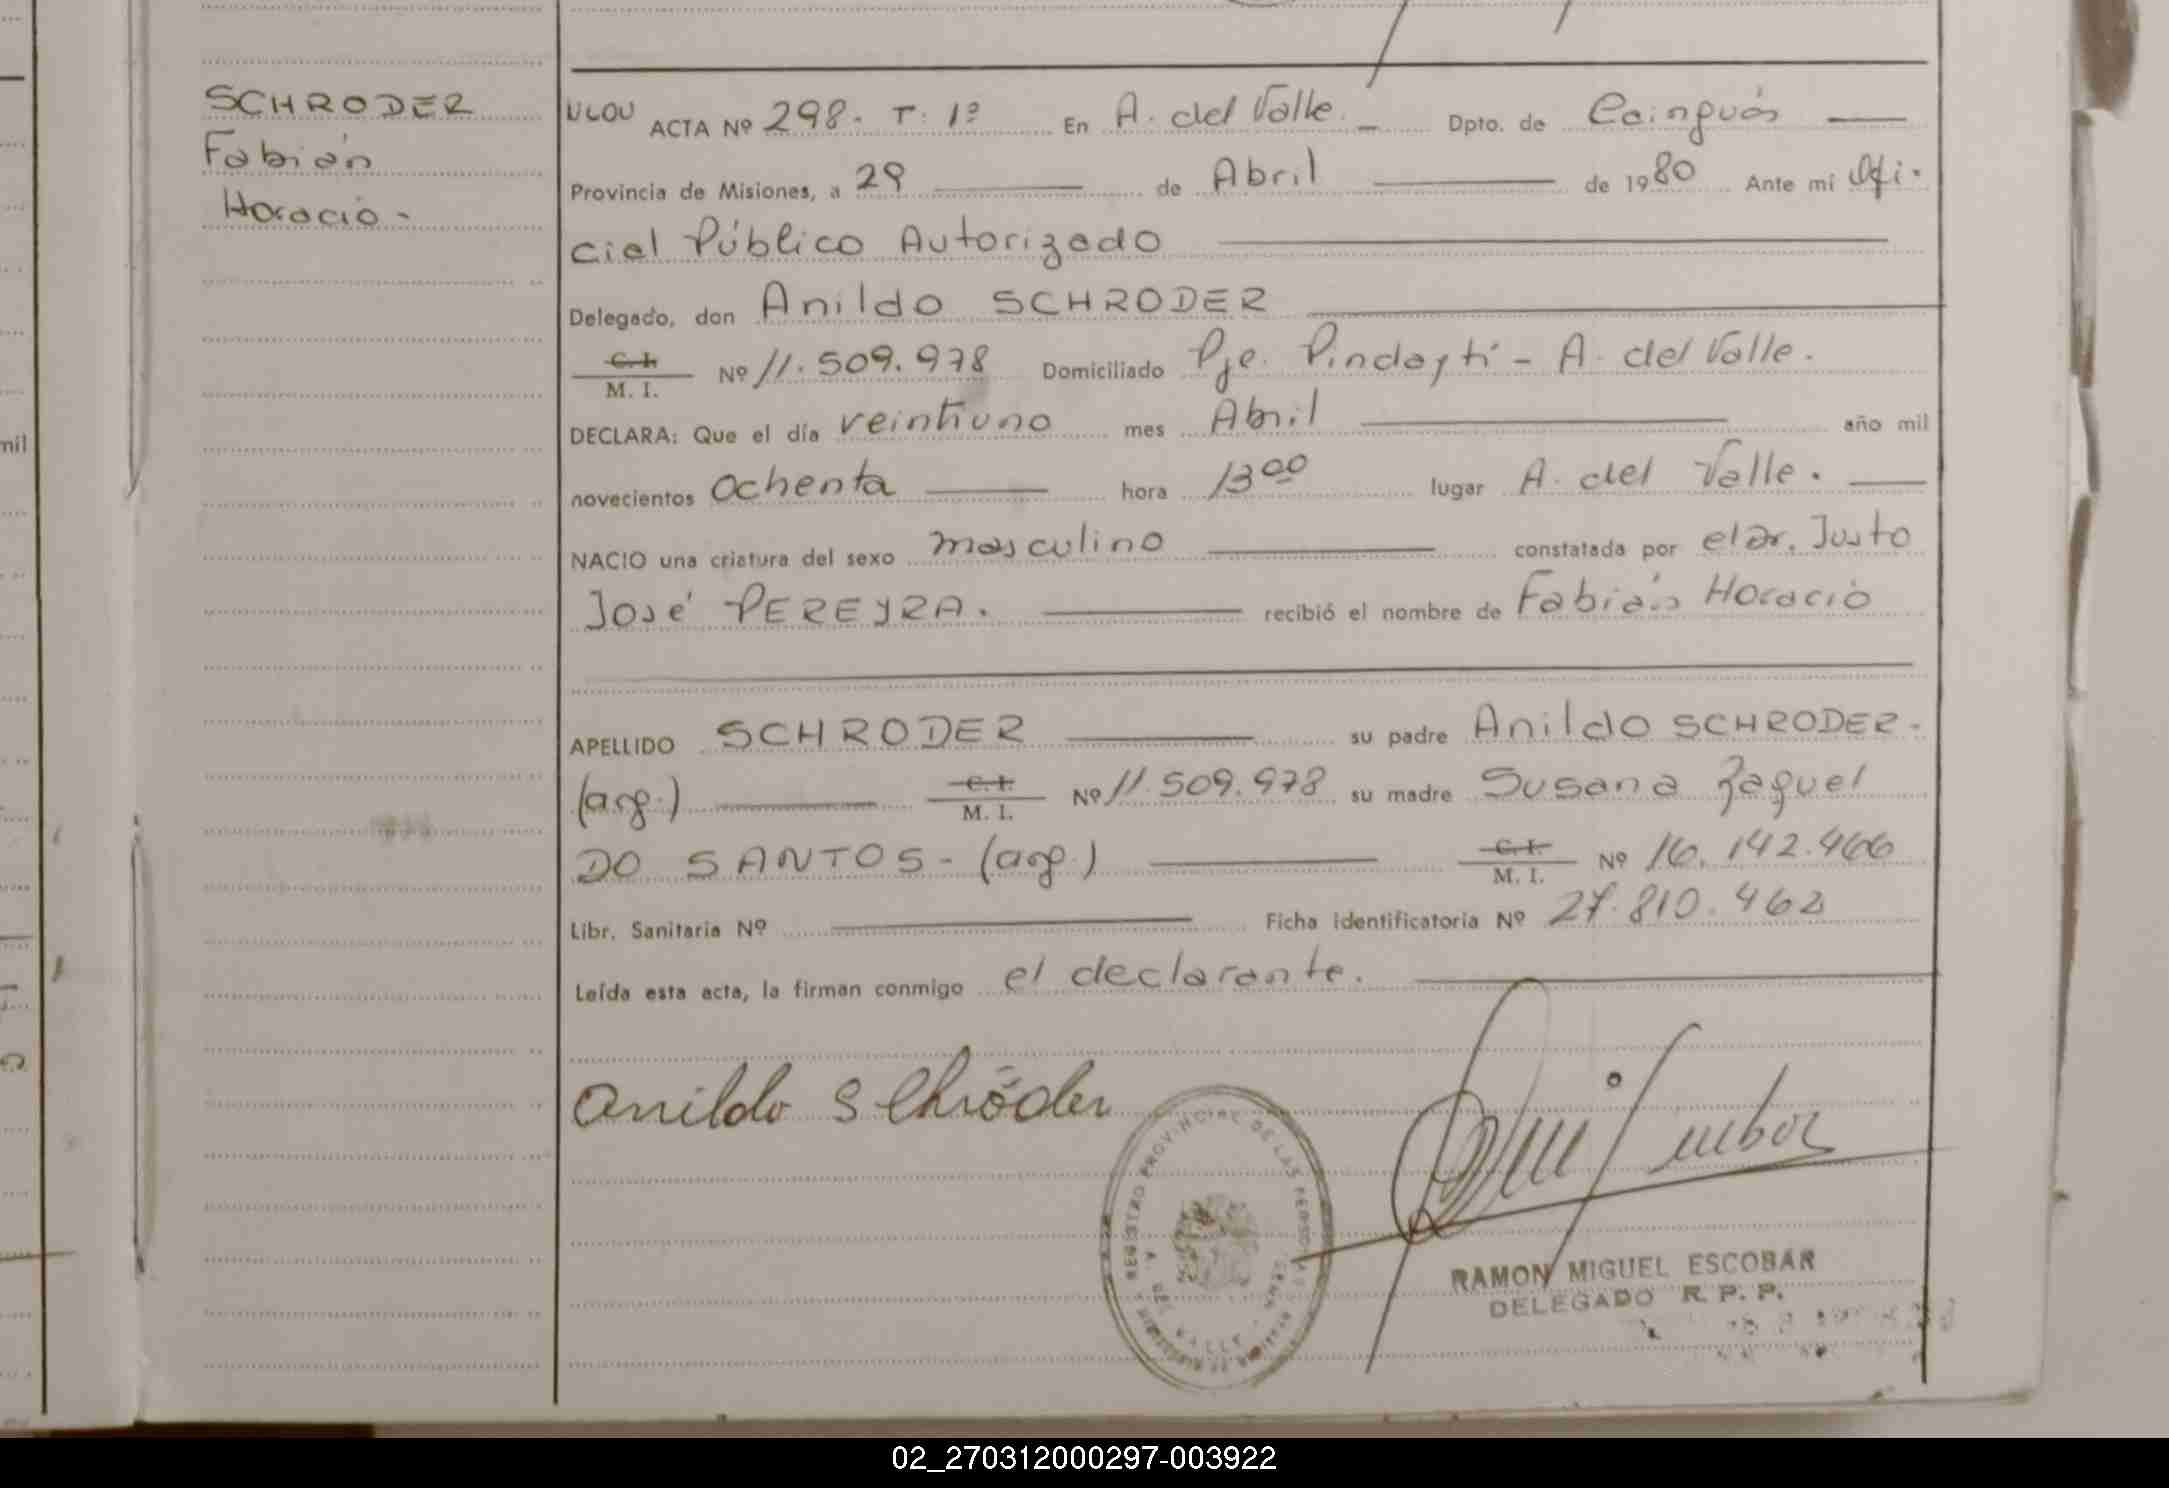 SCHRODER
Fabián
Horacio -
mil
ACTA Nº 298. T. 1º En A. del Valle. Dpto. de Cainguás
Provincia de Misiones, a 29 de Abril de 1980 Ante mi Ofi-
cial Público Autorizado
Delegado, don Anildo SCHRODER
C. I.
M. I. Nº 11.509.978 Domiciliado Pje. Pindaytí - A. del Valle.
DECLARA: Que el día veintiuno mes Abril año mil
novecientos ochenta hora 13 00 lugar A. del Valle.
NACIO una criatura del sexo masculino constatada por el Dr. Justo
José PEREYRA. recibió el nombre de Fabián Horacio
APELLIDO SCHRODER su padre Anildo SCHRODER -
(arg.) C. I.
M. I. Nº 11.509.978 su madre Susana Raquel
DO SANTOS - (arg.) C. I.
M. I. Nº 16.142.466
Libr. Sanitaria Nº Ficha Identificatoria Nº 27.810.462
Leída esta acta, la firman conmigo el declarante.
Anildo Schröder
REGISTRO PROVINCIAL DE LAS PERSONAS
A. DEL VALLE
RAMON MIGUEL ESCOBAR
DELEGADO R. P. P.
02_270312000297-003922